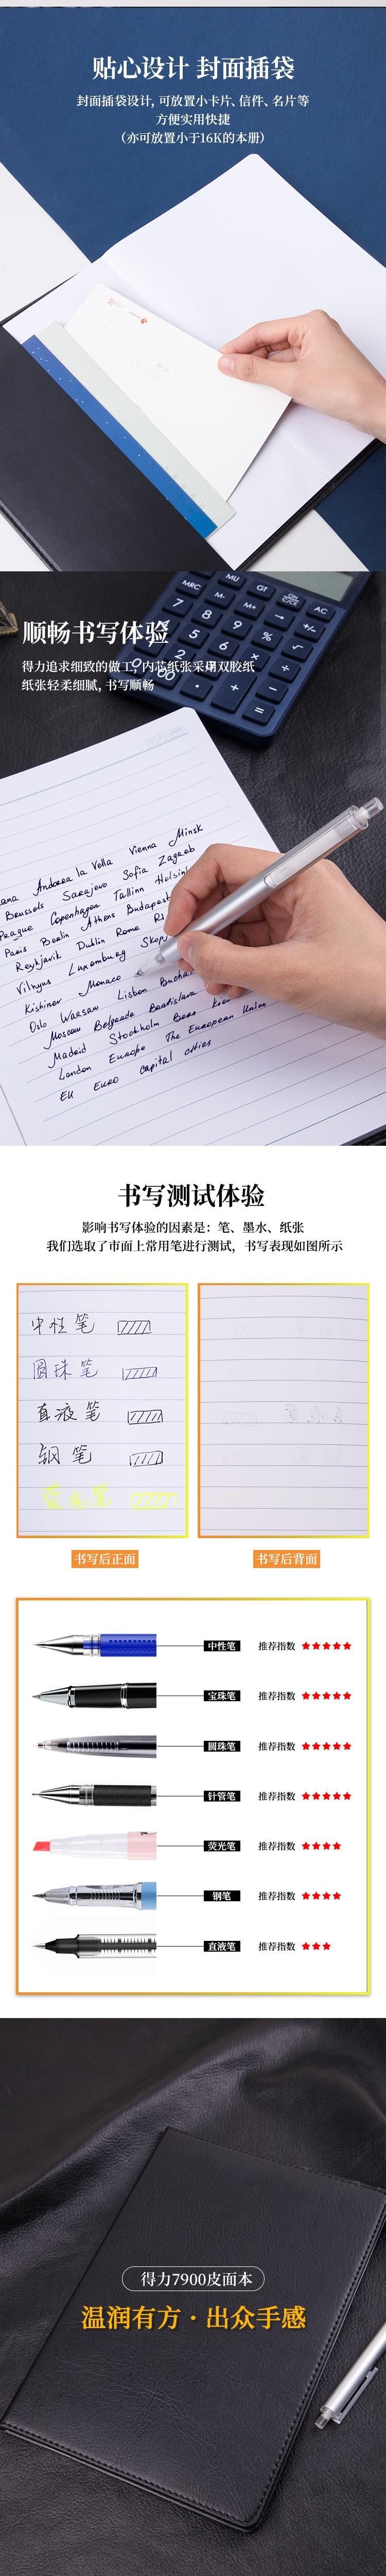 贴心设计 封面插袋
封面插袋设计, 可放置小卡片、信件、名片等
方便实用快捷
（亦可放置小于16K的本册）
MU
GT
MRC
M-
M+
→
AC
7
8
9
%
+/-
4
5
6
×
÷
顺畅书写体验
得力追求细致的做工, 内芯纸张采用双胶纸
纸张轻柔细腻, 书写顺畅
Andorra la Vella Vienna Minsk
Brussels Sarajevo Sofia Zagreb
Prague Copenhagen Tallinn Helsinki
Paris Berlin Athens Budapest
Reykjavik Dublin Rome
Vilnyus Luxembourg
Kishinev Monaco
Oslo Warsaw Lisbon
Moscow Belgrade Bratislava
Madrid Stockholm Bern
London Europe The European Union
EU Euro capital cities
书写测试体验
影响书写体验的因素是：笔、墨水、纸张
我们选取了市面上常用笔进行测试，书写表现如图所示
中性笔
圆珠笔
直液笔
钢笔
荧光笔
书写后正面
书写后背面
中性笔 推荐指数 ★★★★★
宝珠笔 推荐指数 ★★★★★
圆珠笔 推荐指数 ★★★★★
针管笔 推荐指数 ★★★★★
荧光笔 推荐指数 ★★★★
钢笔 推荐指数 ★★★★
直液笔 推荐指数 ★★★
得力7900皮面本
温润有方 · 出众手感